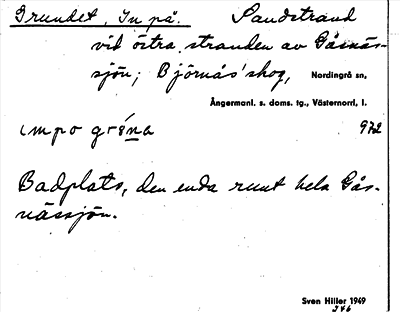 Grundet, In på. Sandstrand
vid östra stranden av Gåsnäs-
sjön; Björnås' skog, Nordingrå sn,
Ångermanl. s. doms. tg., Västernorrl, l.
impo gréna 972
Badplats, den enda runt hela Gås-
nässjön.
Sven Hiller 1949
346